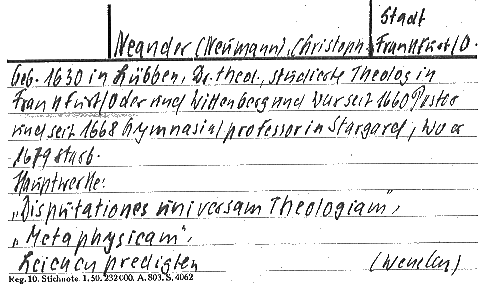 Stadt
Neander (Neümann), Christoph. Frankfurt/O.
geb. 1630 in Lübben, Dr. theol., stüdierte Theolog in
Frankfurt/Oder und Wittenberg und war seit 1660 Pastor
und seit 1668 Gymnasialprofessor in Stargard, wo er
1679 starb.
Hauptwerke:
„Dispütationes üniversam Theologiam",
„Metaphysicam",
Leichenpredigten
Reg. 10. Stichnote. 1. 50. 232000. A. 803. S. 4062